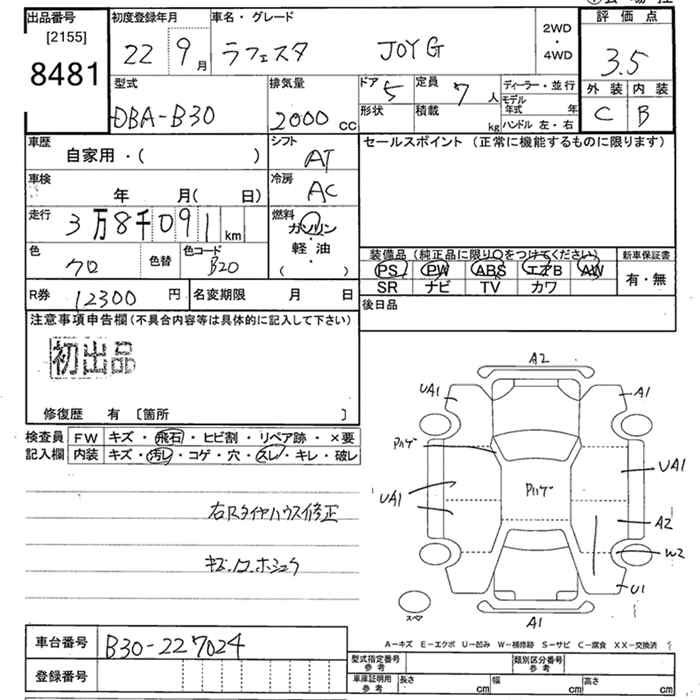 出品番号
[2155]
8481
初度登録年月
22 9月
車名・グレード
ラフェスタ JOY G
2WD
・
4WD
評価点
3.5
外装 内装
C B
型式
DBA-B30
排気量
2000 cc
ドア 5
形状
定員 7 人
積載 kg
ディーラー・並行
モデル年式 年
ハンドル 左・右
車歴
自家用・( )
シフト
AT
セールスポイント (正常に機能するものに限ります)
車検
年 月( 日)
冷房
AC
走行
3万8千091 km
燃料
ガソリン
・
軽油
( ・ )
色
クロ
色替
色コード
B20
装備品 (純正品に限り○をつけてください)
PS PW ABS エアB AW
SR ナビ TV カワ
新車保証書
有・無
R券 12300 円
名変期限 月 日
後日品
注意事項申告欄 (不具合内容等は具体的に記入して下さい)
初出品
修復歴 有 〔箇所 〕
検査員
記入欄
FW キズ・飛石・ヒビ割・リペア跡・×要
内装 キズ・汚レ・コゲ・穴・スレ・キレ・破レ
右Rタイヤハウス修正
A2
UA1
A1
Pハゲ
Pハゲ
UA1
UA1
A2
W2
U1
A1
スペア
A-キズ E-エクボ U-凹み W-補修跡 S-サビ C-腐食 XX-交換済
車台番号 B30-227024
登録番号
型式指定番号
参考
類別区分番号
参考
車庫証明用
参考
長さ cm 幅 cm 高さ cm